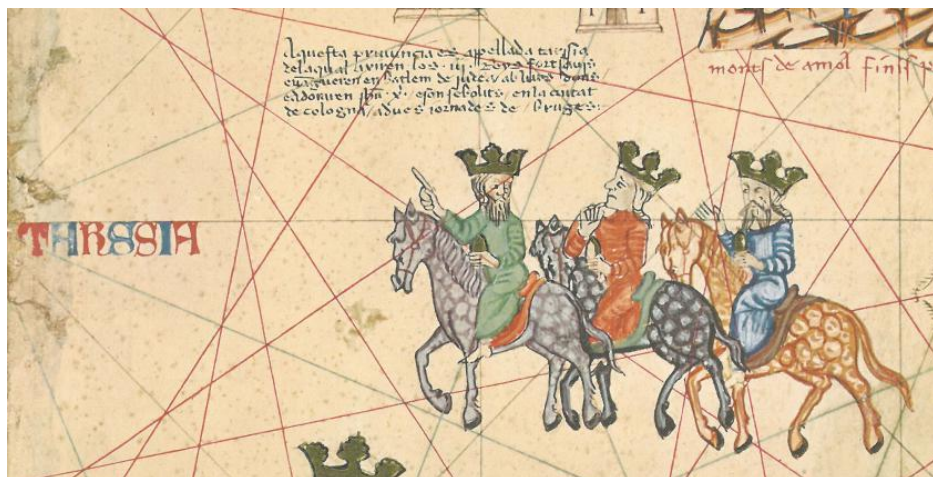 Aquesta prouincia es apellada tarsia
dela qual axiren los .iij. Reys fort sauis
euangueren en batlem de judea ab lurs dons
eadoraren ihu .x. eson sebolits en la ciutat
de cologna adues iornades de bruges:
monts de amol finis p
TARSSIA